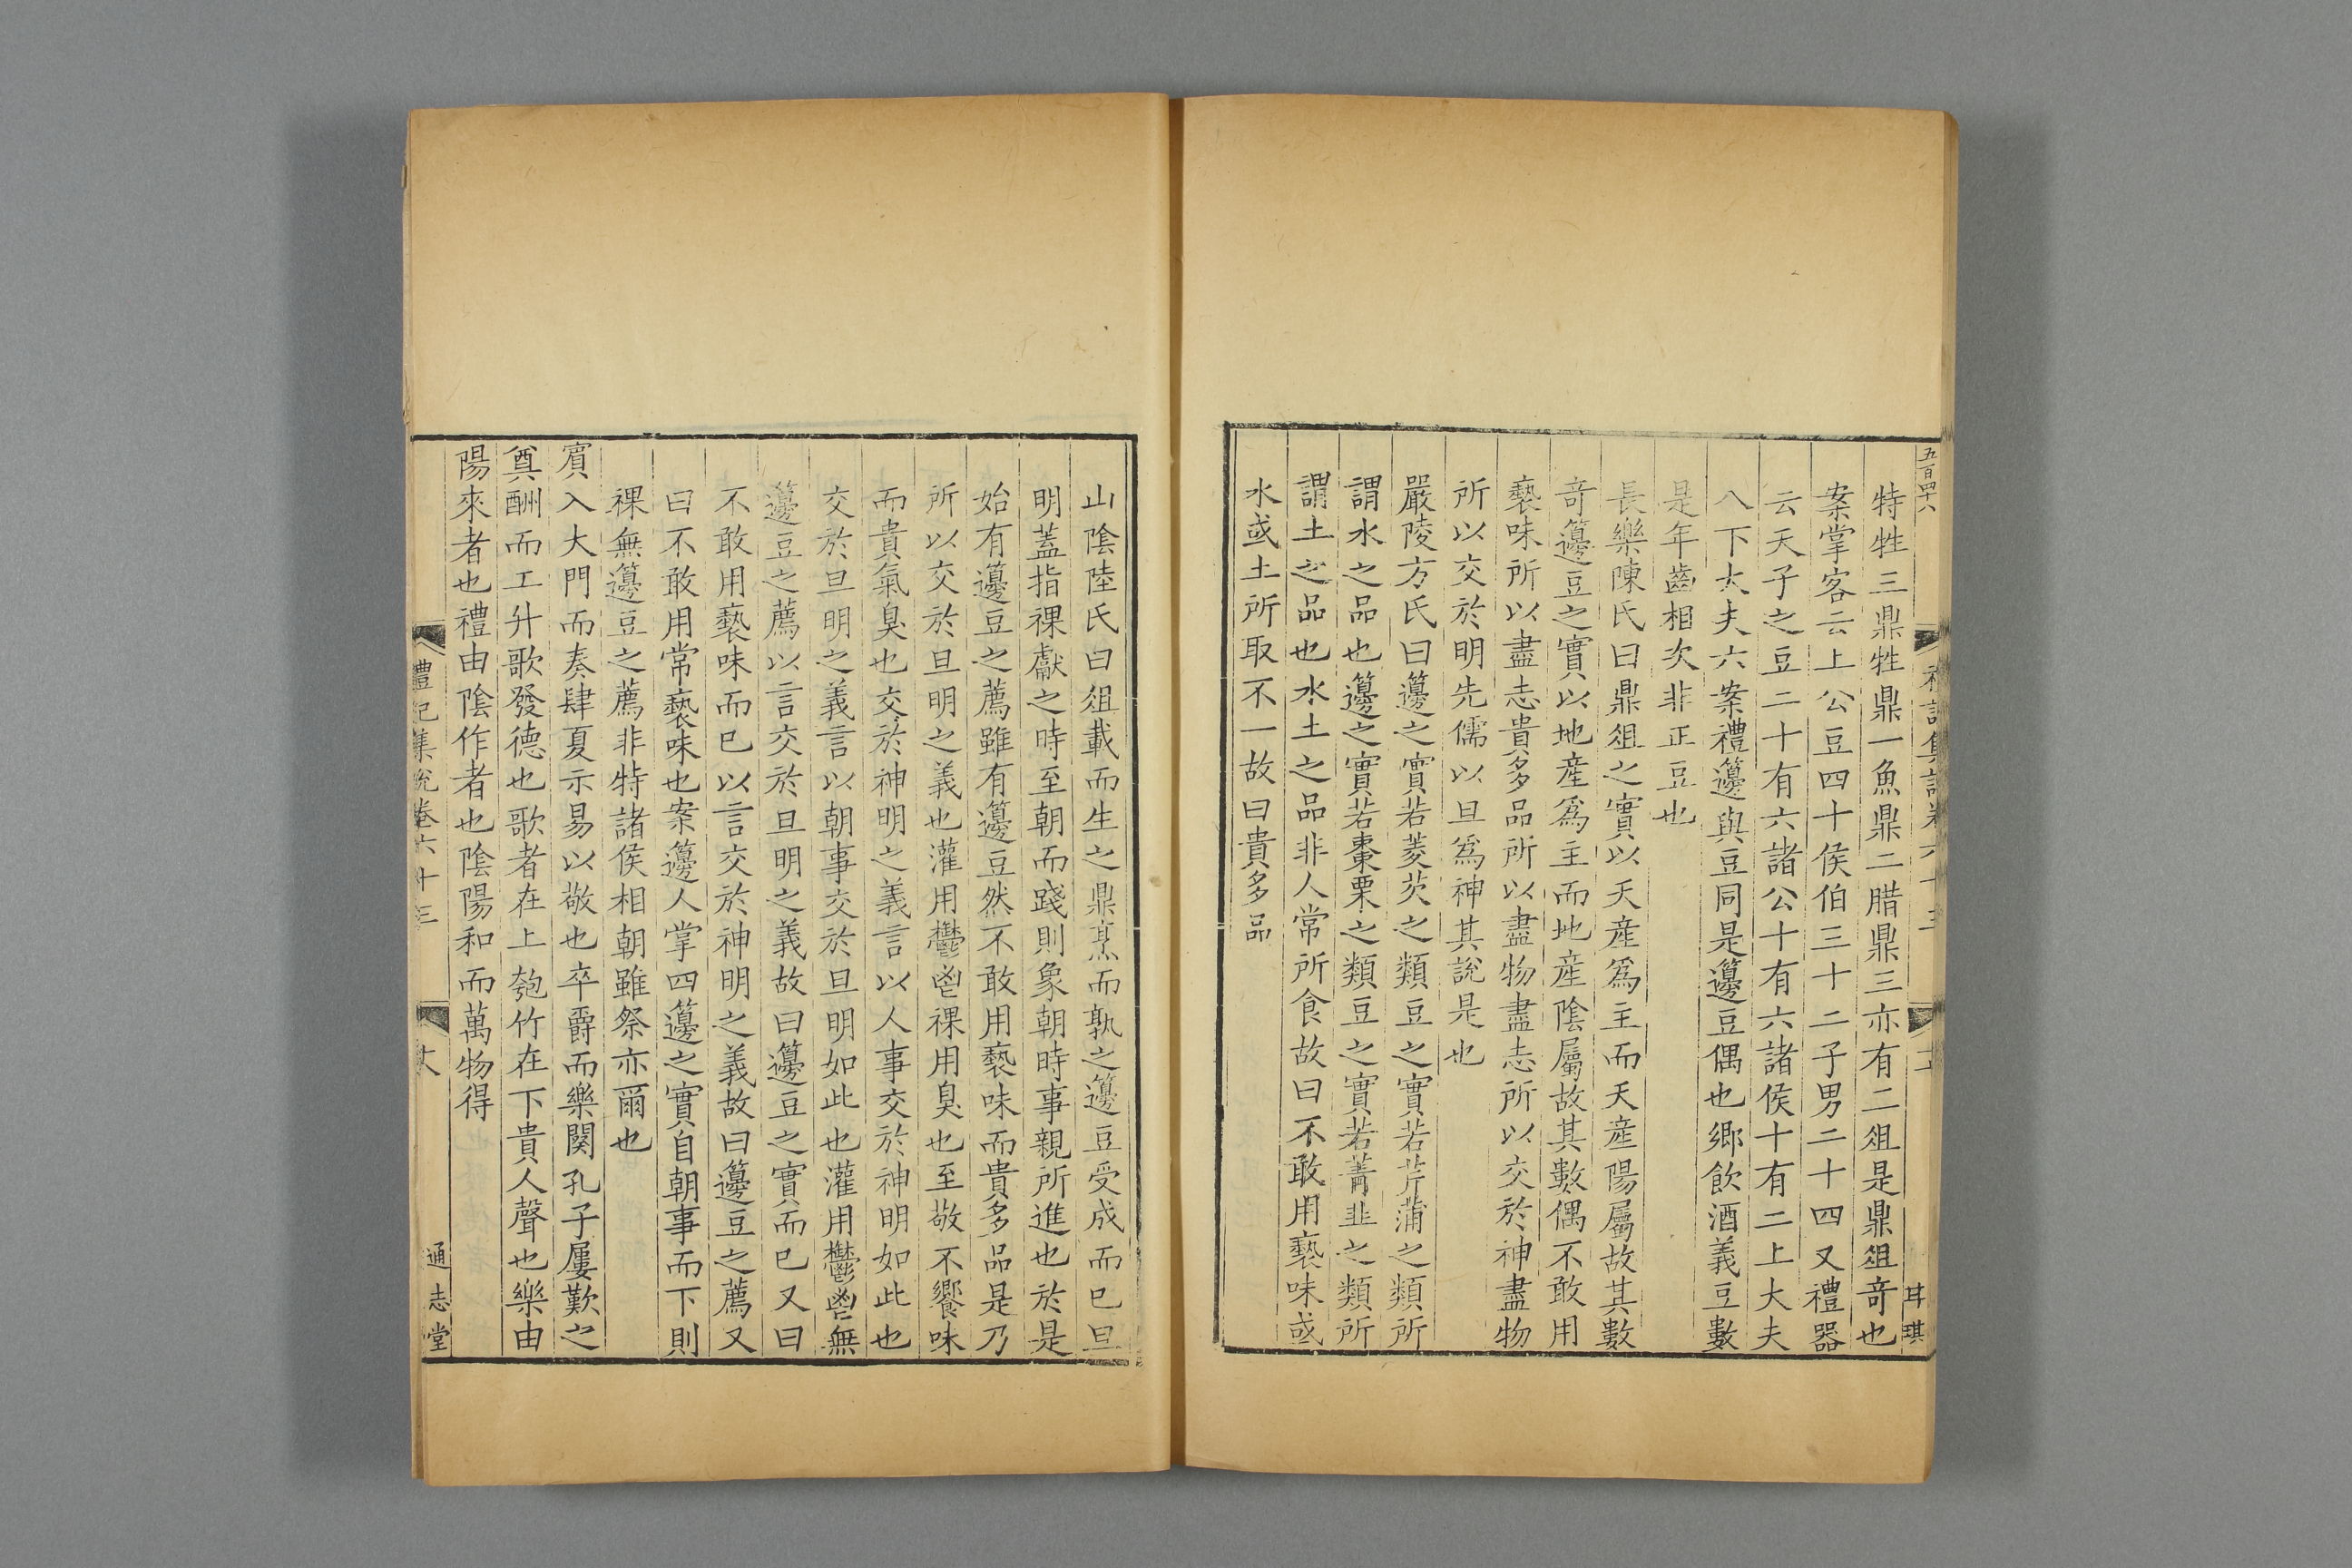 五百四六
特牲三鼎牲鼎一魚鼎二腊鼎三亦有二俎是鼎俎竒也
案掌客云上公豆四十侯伯三十二子男二十四又禮器
云天子之豆二十有六諸公十有六諸侯十有二上大夫
八下大夫六案禮籩與豆同是籩豆偶也鄉飲酒義豆數
是年齒相次非正豆也
長樂陳氏曰鼎俎之實以天産爲主而天産陽屬故其數
竒籩豆之實以地産爲主而地産陰屬故其數偶不敢用
褻味所以盡志貴多品所以盡物盡志所以交於神盡物
所以交於明先儒以旦爲神其説是也
嚴陵方氏曰籩之實若菱芡之類豆之實若芹蒲之類所
謂水之品也籩之實若棗栗之類豆之實若菁韭之類所
謂土之品也水土之品非人常所食故曰不敢用褻味或
水或土所取不一故曰貴多品
山陰陸氏曰俎載而生之鼎烹而孰之籩豆受成而已旦
明蓋指祼獻之時至朝而踐則象朝時事親所進也於是
始有籩豆之薦雖有籩豆然不敢用褻味而貴多品是乃
所以交於旦明之義也灌用鬱鬯祼用臭也至敬不饗味
而貴氣臭也交於神明之義言以人事交於神明如此也
交於旦明之義言以朝事交於旦明如此也灌用鬱鬯無
籩豆之薦以言交於旦明之義故曰籩豆之實而已又曰
不敢用褻味而已以言交於神明之義故曰籩豆之薦又
曰不敢用常褻味也案籩人掌四籩之實自朝事而下則
祼無籩豆之薦非特諸侯相朝雖祭亦爾也
賓入大門而奏肆夏示易以敬也卒爵而樂闋孔子屢歎之
奠酬而工升歌發德也歌者在上匏竹在下貴人聲也樂由
陽來者也禮由陰作者也陰陽和而萬物得
禮記集説卷六十三
通志堂